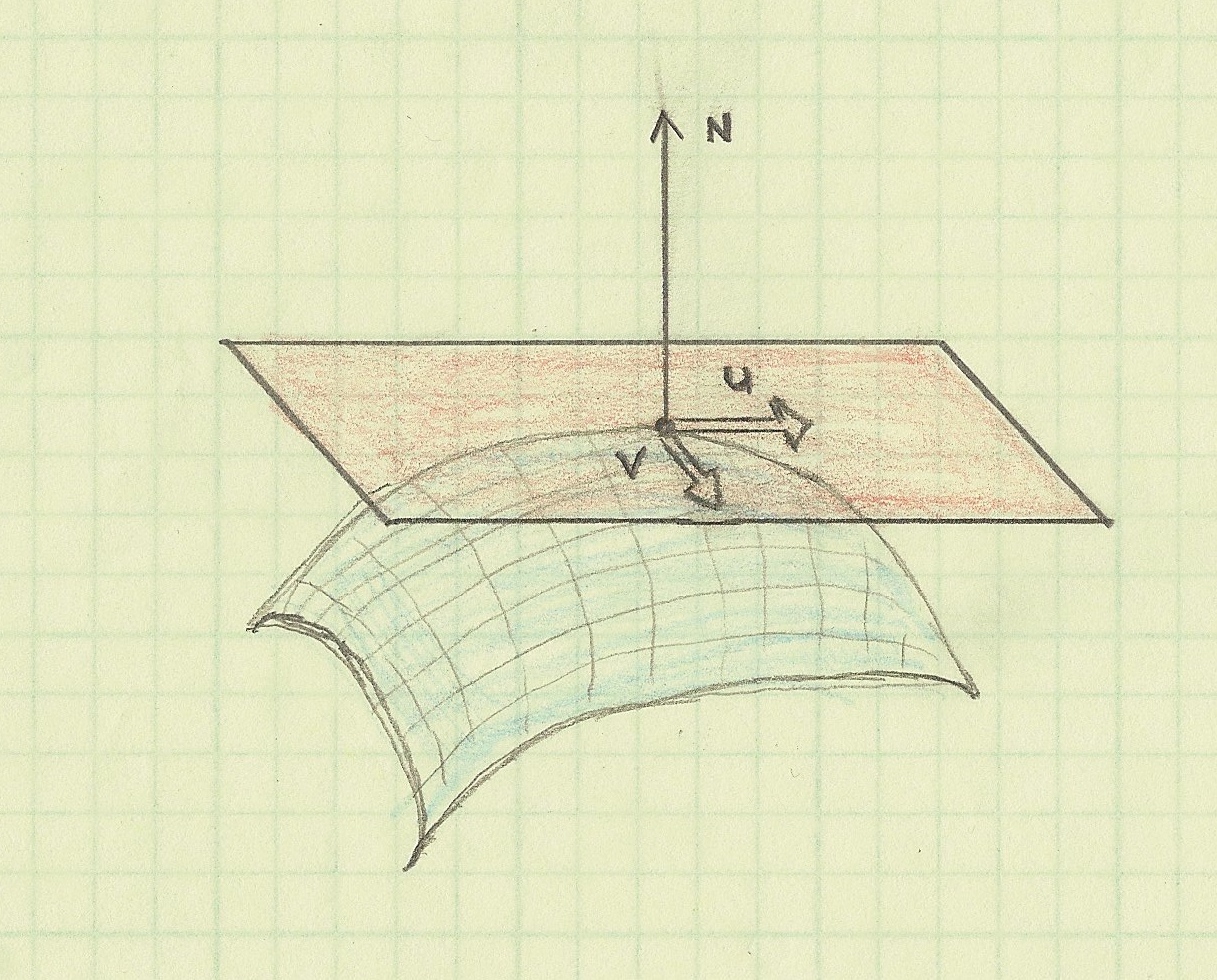 N
u
v